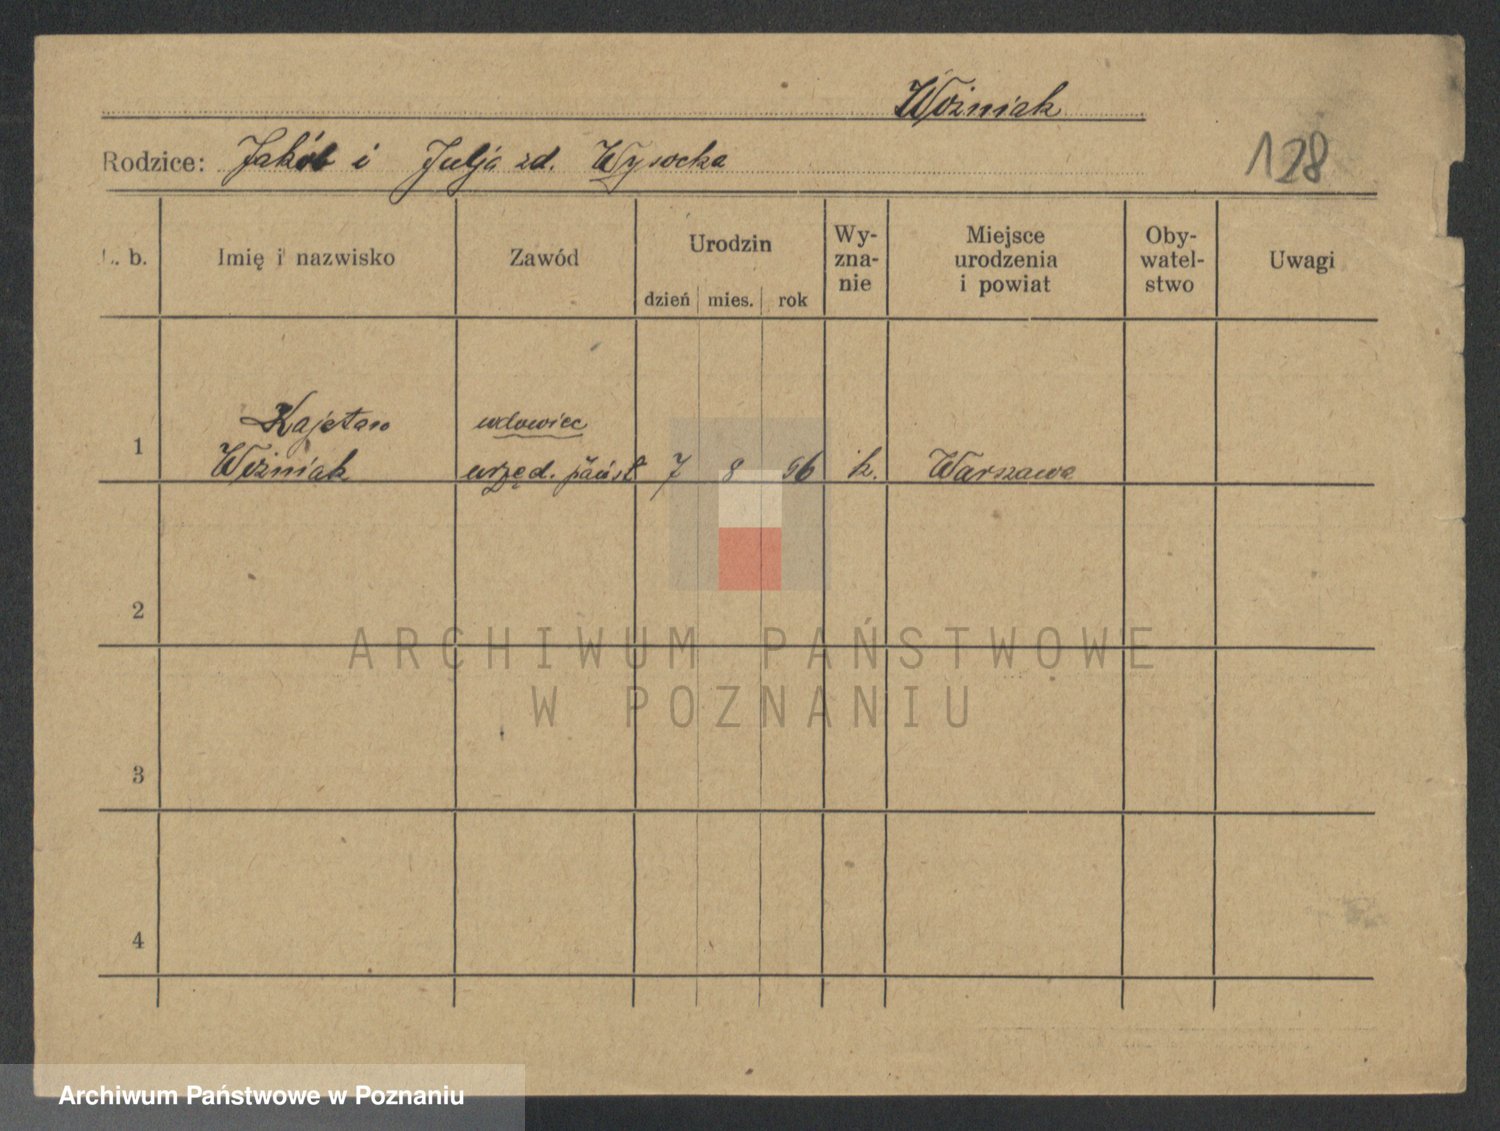 Woźniak
Rodzice: Jakób i Julja zd. Wysocka
128
L. b.
Imię i nazwisko
Zawód
Urodzin
dzień mies. rok
Wy-
zna-
nie
Miejsce
urodzenia
i powiat
Oby-
watel-
stwo
Uwagi
1
Kajetan
Woźniak
wdowiec
urzęd. państ
7 8 96
k.
Warszawa
2
3
4
ARCHIWUM PAŃSTWOWE
W POZNANIU
Archiwum Państwowe w Poznaniu